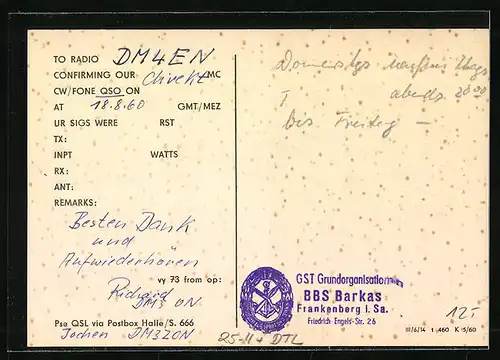 TO RADIO DM4EN
CONFIRMING OUR direkt MC
CW/FONE QSO ON
AT 18.8.60 GMT/MEZ
UR SIGS WERE RST
TX:
INPT WATTS
RX:
ANT:
REMARKS:
Besten Dank
und
Aufwiederhören
vy 73 from op:
Richard
DM3 ON
Pse QSL via Postbox Halle/S. 666
Jochen DM3ZON
Donnerstgs
abends 20 00
Bis Freitag –
GST Grundorganisation
BBS Barkas
Frankenberg i. Sa.
Friedrich-Engels-Str. 26
12,-
III/6/14 1 460 K 5/60
25-11+ DTL